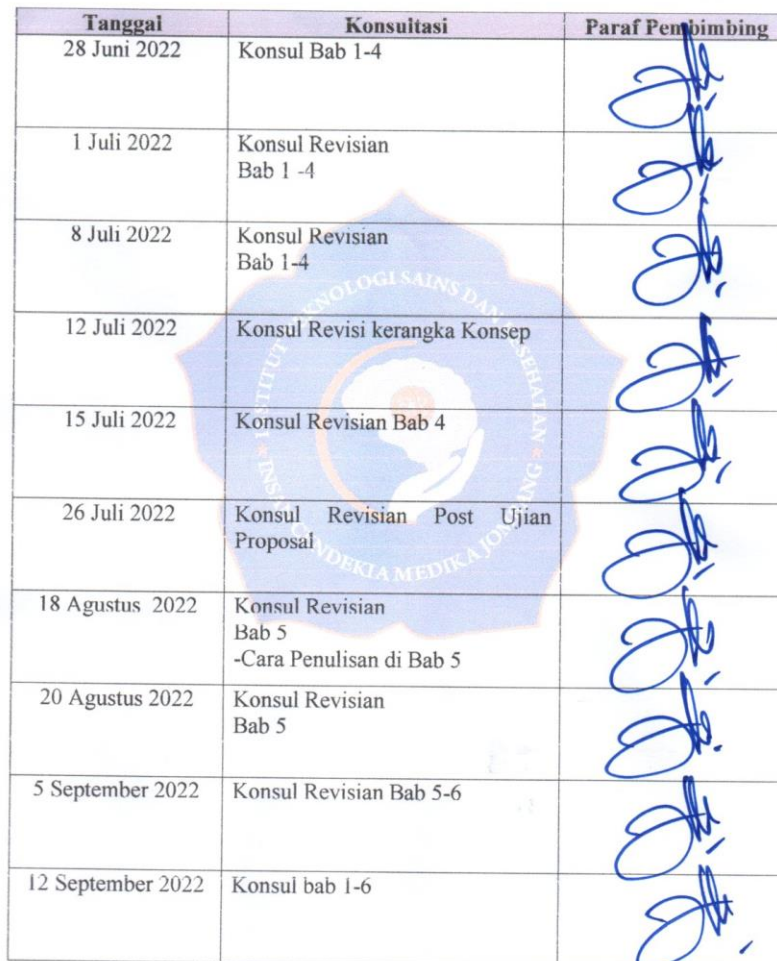 Tanggal Konsultasi Paraf Pembimbing
28 Juni 2022 Konsul Bab 1-4
1 Juli 2022 Konsul Revisian
Bab 1 -4
8 Juli 2022 Konsul Revisian
Bab 1-4
12 Juli 2022 Konsul Revisi kerangka Konsep
15 Juli 2022 Konsul Revisian Bab 4
26 Juli 2022 Konsul Revisian Post Ujian
Proposal
18 Agustus 2022 Konsul Revisian
Bab 5
-Cara Penulisan di Bab 5
20 Agustus 2022 Konsul Revisian
Bab 5
5 September 2022 Konsul Revisian Bab 5-6
12 September 2022 Konsul bab 1-6
INSTITUT TEKNOLOGI SAINS DAN KESEHATAN
INSAN CENDEKIA MEDIKA JOMBANG